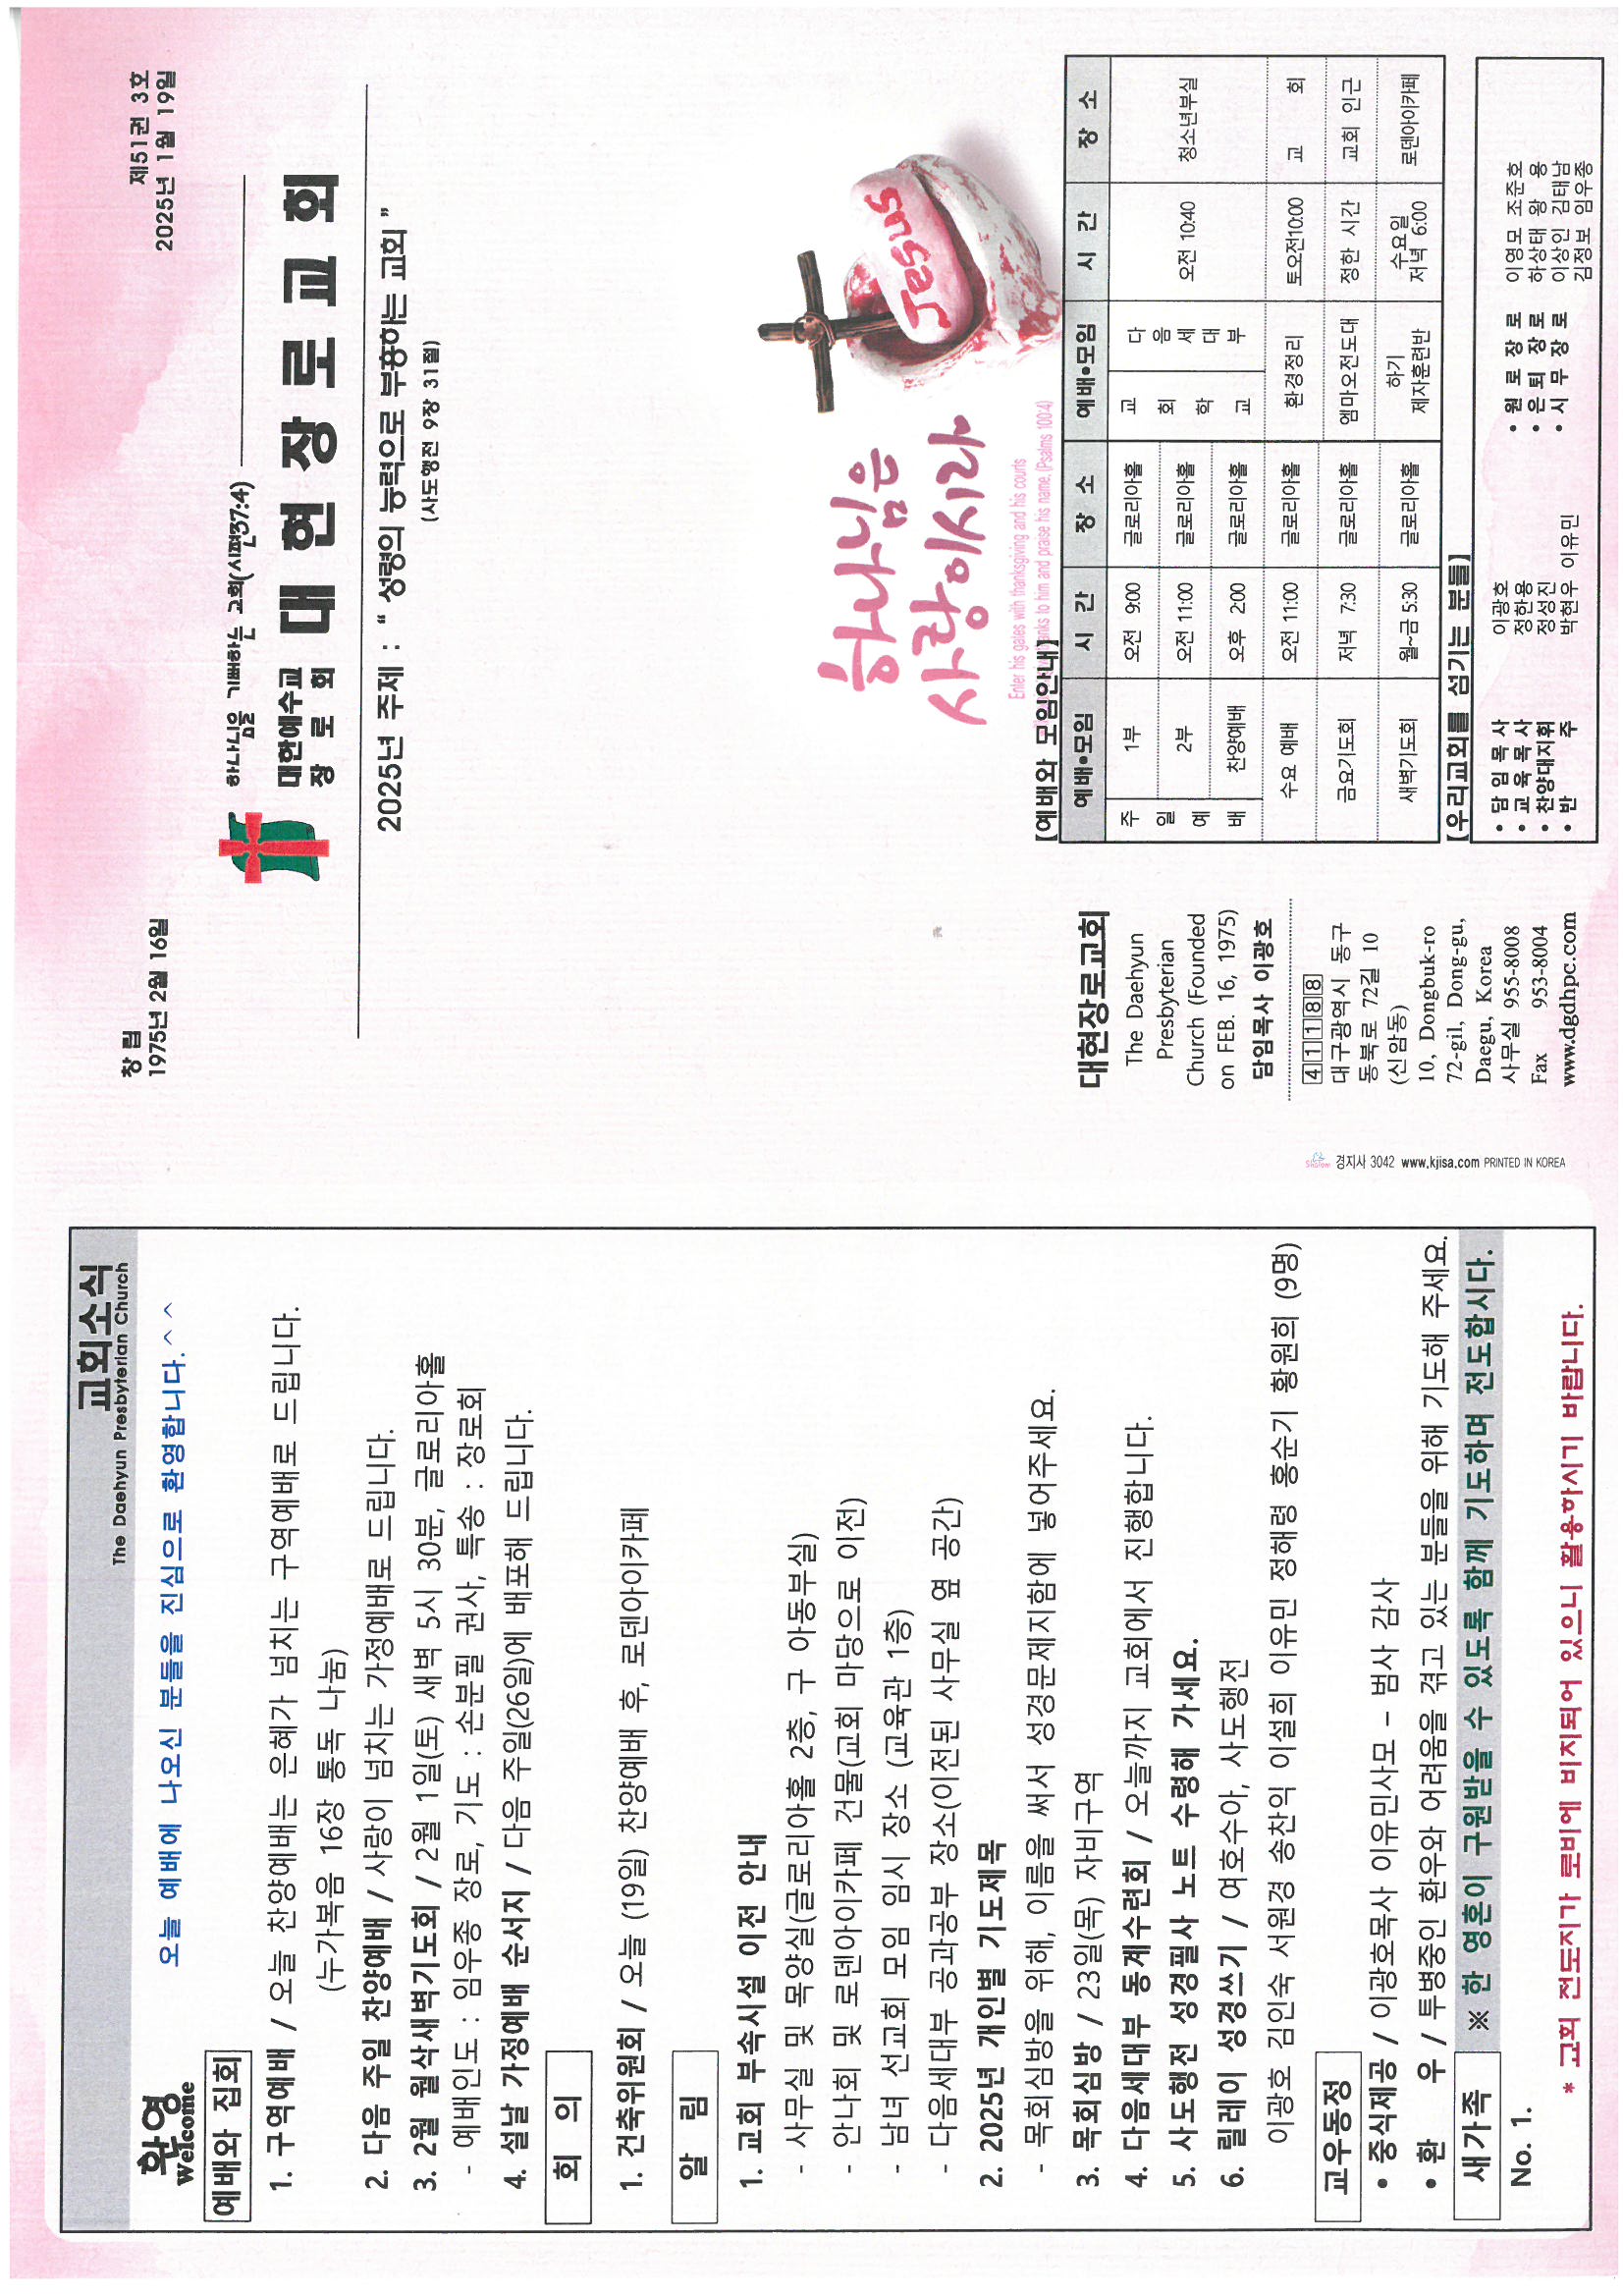 교회소식
The Daehyun Presbyterian Church
환영
Welcome
오늘 예배에 나오신 분들을 진심으로 환영합니다.^^
예배와 집회
1. 구역예배 / 오늘 찬양예배는 은혜가 넘치는 구역예배로 드립니다.
(누가복음 16장 통독 나눔)
2. 다음 주일 찬양예배 / 사랑이 넘치는 가정예배로 드립니다.
3. 2월 월삭새벽기도회 / 2월 1일(토) 새벽 5시 30분, 글로리아홀
- 예배인도 : 임우종 장로, 기도 : 손분필 권사, 특송 : 장로회
4. 설날 가정예배 순서지 / 다음 주일(26일)에 배포해 드립니다.
회 의
1. 건축위원회 / 오늘 (19일) 찬양예배 후, 로덴아이카페
알 림
1. 교회 부속시설 이전 안내
- 사무실 및 목양실(글로리아홀 2층, 구 아동부실)
- 안나회 및 로덴아이카페 건물(교회 마당으로 이전)
- 남녀 선교회 모임 임시 장소 (교육관 1층)
- 다음세대부 공과공부 장소(이전된 사무실 옆 공간)
2. 2025년 개인별 기도제목
- 목회심방을 위해, 이름을 써서 성경문제지함에 넣어주세요.
3. 목회심방 / 23일(목) 자비구역
4. 다음세대부 동계수련회 / 오늘까지 교회에서 진행합니다.
5. 사도행전 성경필사 노트 수령해 가세요.
6. 릴레이 성경쓰기 / 여호수아, 사도행전
이광호 김인숙 서원경 송찬익 이설희 이유민 정해령 홍순기 황원희 (9명)
교우동정
• 중식제공 / 이광호목사 이유민사모 - 범사 감사
• 환 우 / 투병중인 환우와 어려움을 겪고 있는 분들을 위해 기도해 주세요.
새가족
※ 한 영혼이 구원받을 수 있도록 함께 기도하며 전도합시다.
No. 1.
* 교회 전도지가 로비에 비치되어 있으니 활용하시기 바랍니다.
창 립
1975년 2월 16일
제51권 3호
2025년 1월 19일
하나님을 기뻐하는 교회(시편37:4)
대한예수교
장 로 회
대 현 장 로 교 회
2025년 주제 : “ 성령의 능력으로 부흥하는 교회 ”
(사도행전 9장 31절)
하나님은
사랑이시라
Jesus
Enter his gates with thanksgiving and his courts
anks to him and praise his name. (Psalms 100:4)
대현장로교회
The Daehyun
Presbyterian
Church (Founded
on FEB. 16, 1975)
담임목사 이광호
41188
대구광역시 동구
동북로 72길 10
(신암동)
10, Dongbuk-ro
72-gil, Dong-gu,
Daegu, Korea
사무실 955-8008
Fax 953-8004
www.dgdhpc.com
[예배와 모임안내]
예배•모임 시 간 장 소 예배•모임 시 간 장 소
주일예배 1부 오전 9:00 글로리아홀
2부 오전 11:00 글로리아홀
찬양예배 오후 2:00 글로리아홀
교회학교 다음세대부 오전 10:40 청소년부실
수요 예배 오전 11:00 글로리아홀 환경정리 토오전10:00 교 회
금요기도회 저녁 7:30 글로리아홀 엠마오전도대 정한 시간 교회 인근
새벽기도회 월~금 5:30 글로리아홀 하기 제자훈련반 수요일 저녁 6:00 로덴아이카페
[우리교회를 섬기는 분들]
• 담임목사 이광호
• 교육목사 정한용
• 찬양대지휘 정성진
• 반 주 박현우 이유민
• 원로장로 이영모 조준호
• 은퇴장로 하상태 왕 용
• 시무장로 이상인 김태남
김정보 임우종
Shalom 경지사 3042 www.kjisa.com PRINTED IN KOREA